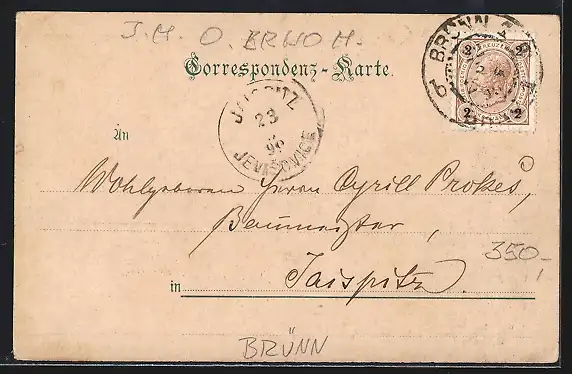 J. M. O. BRWO M.
Correspondenz-Karte.
BRÜNN
2 2
2 2
JAISPITZ
23
5
96
JEVIŠOVICE
An
Wohlgeboren Herrn Cyrill Prokeš,
Baumeister,
350,-
in Jaispitz.
BRÜNN